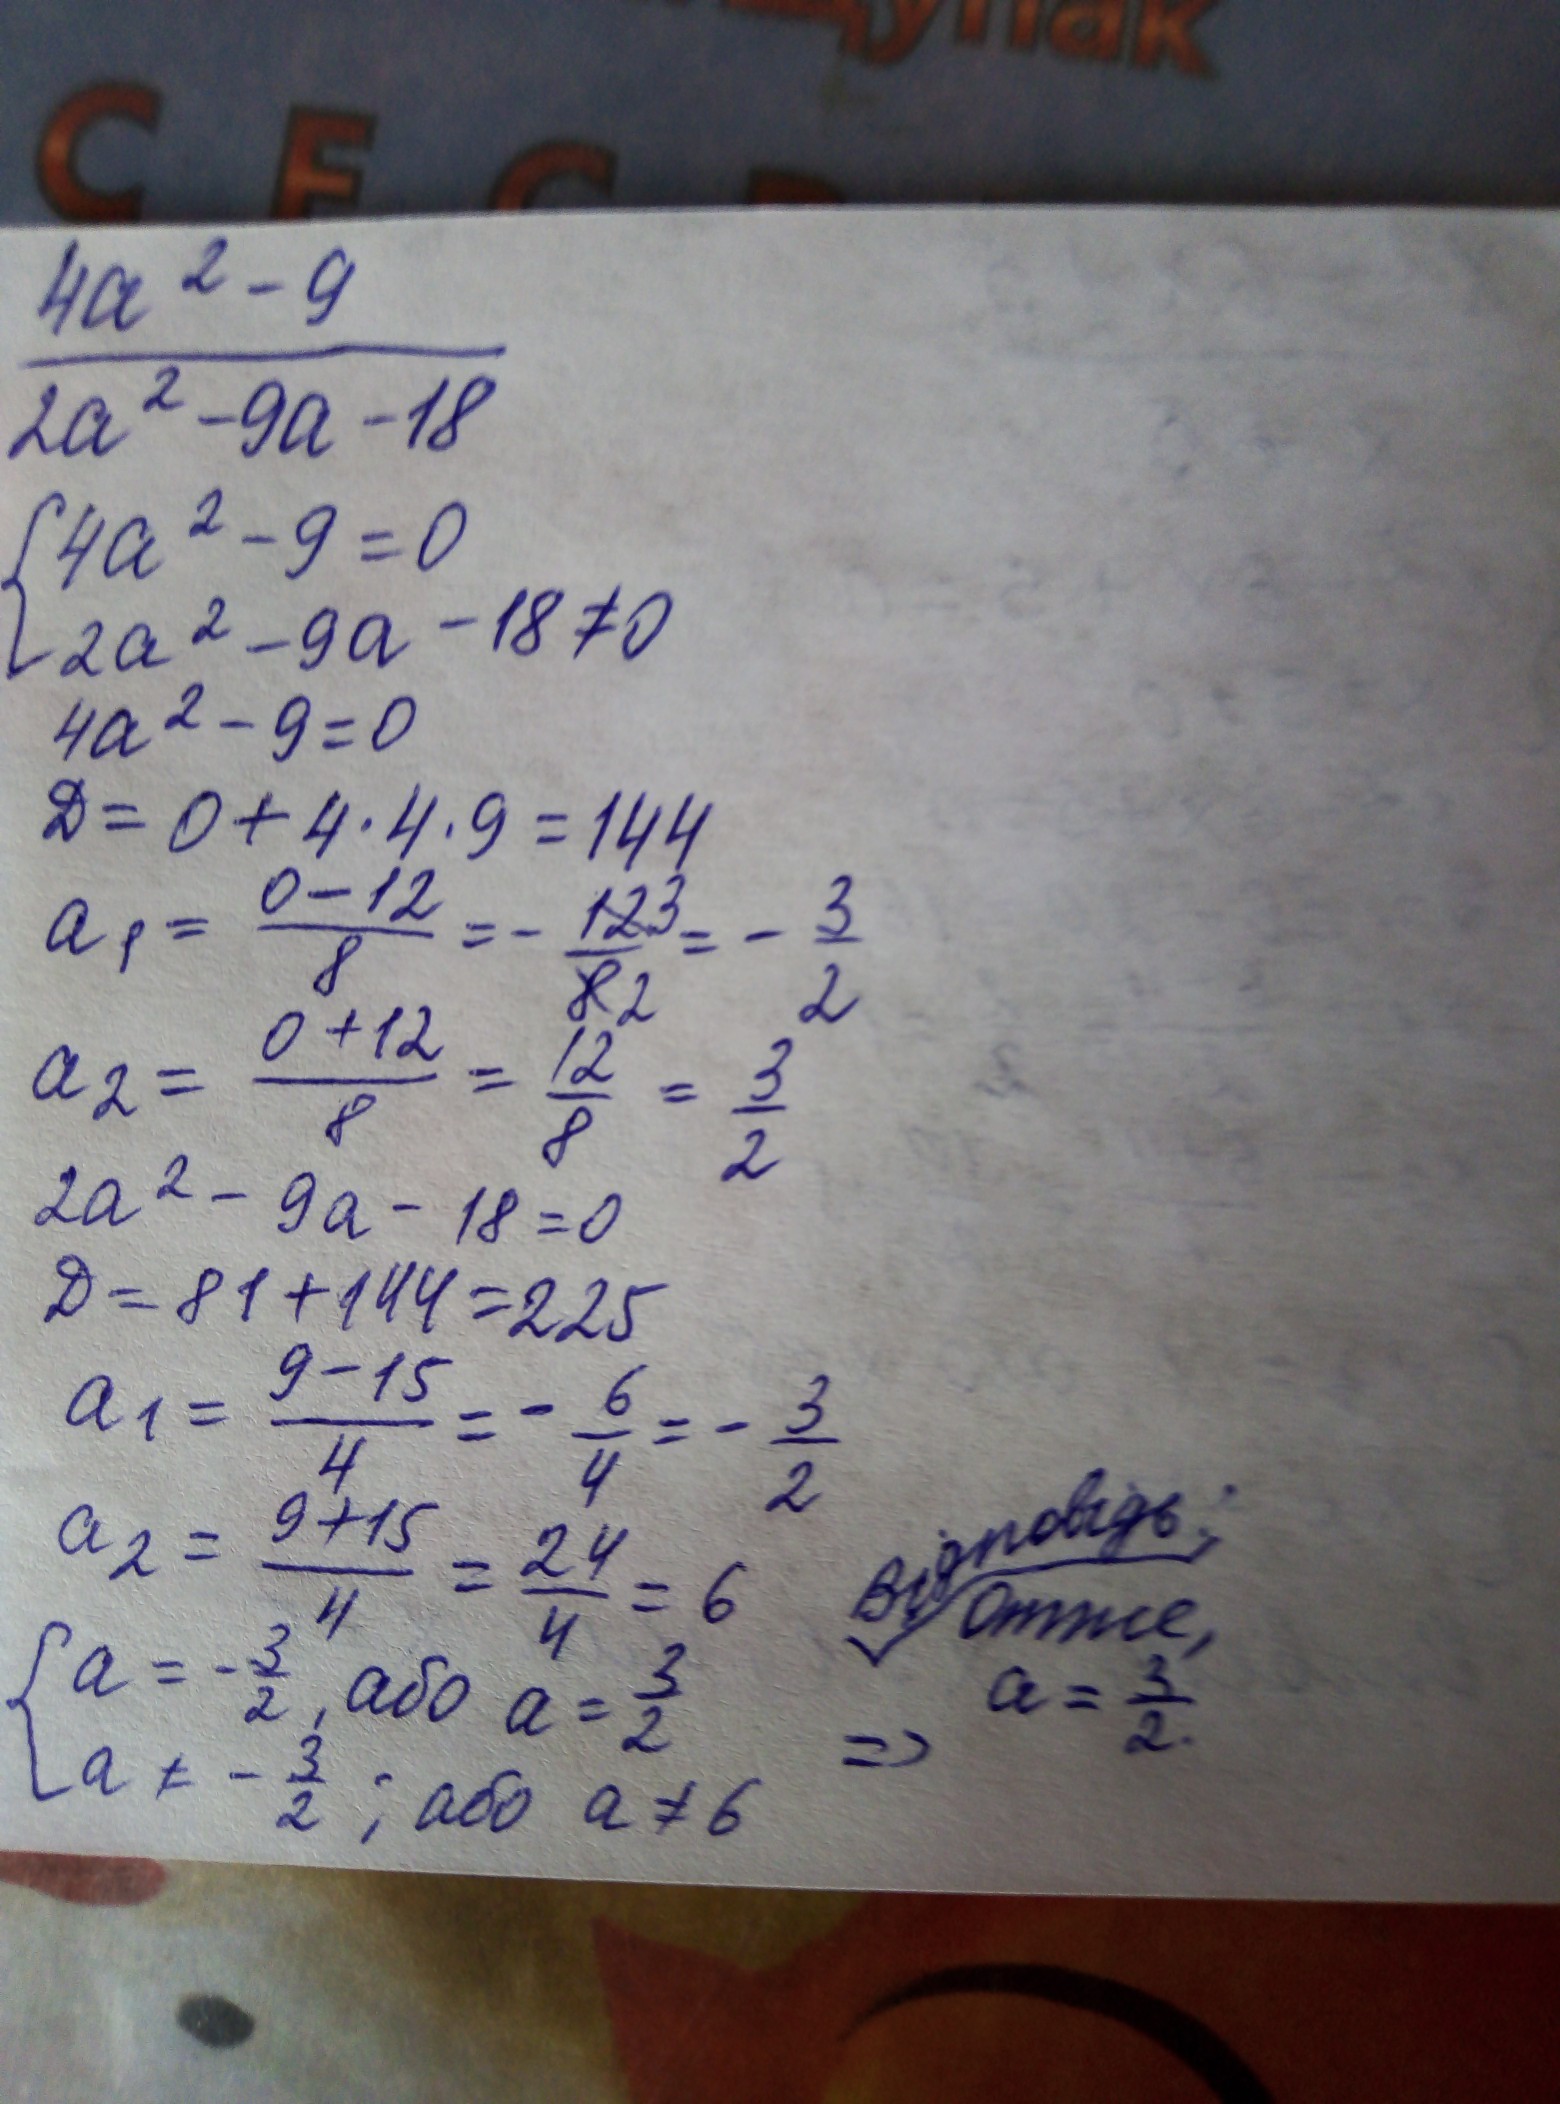 щупак
С Е С
4a² - 9
2a² - 9a - 18
4a² - 9 = 0
2a² - 9a - 18 ≠ 0
4a² - 9 = 0
D = 0 + 4·4·9 = 144
a₁ = (0-12)/8 = -12/8 3/2 = -3/2
a₂ = (0+12)/8 = 12/8 = 3/2
2a² - 9a - 18 = 0
D = 81 + 144 = 225
a₁ = (9-15)/4 = -6/4 = -3/2
a₂ = (9+15)/4 = 24/4 = 6
a = -3/2, або a = 3/2
a ≠ -3/2; або a ≠ 6
=>
Відповідь:
Отже,
a = 3/2.